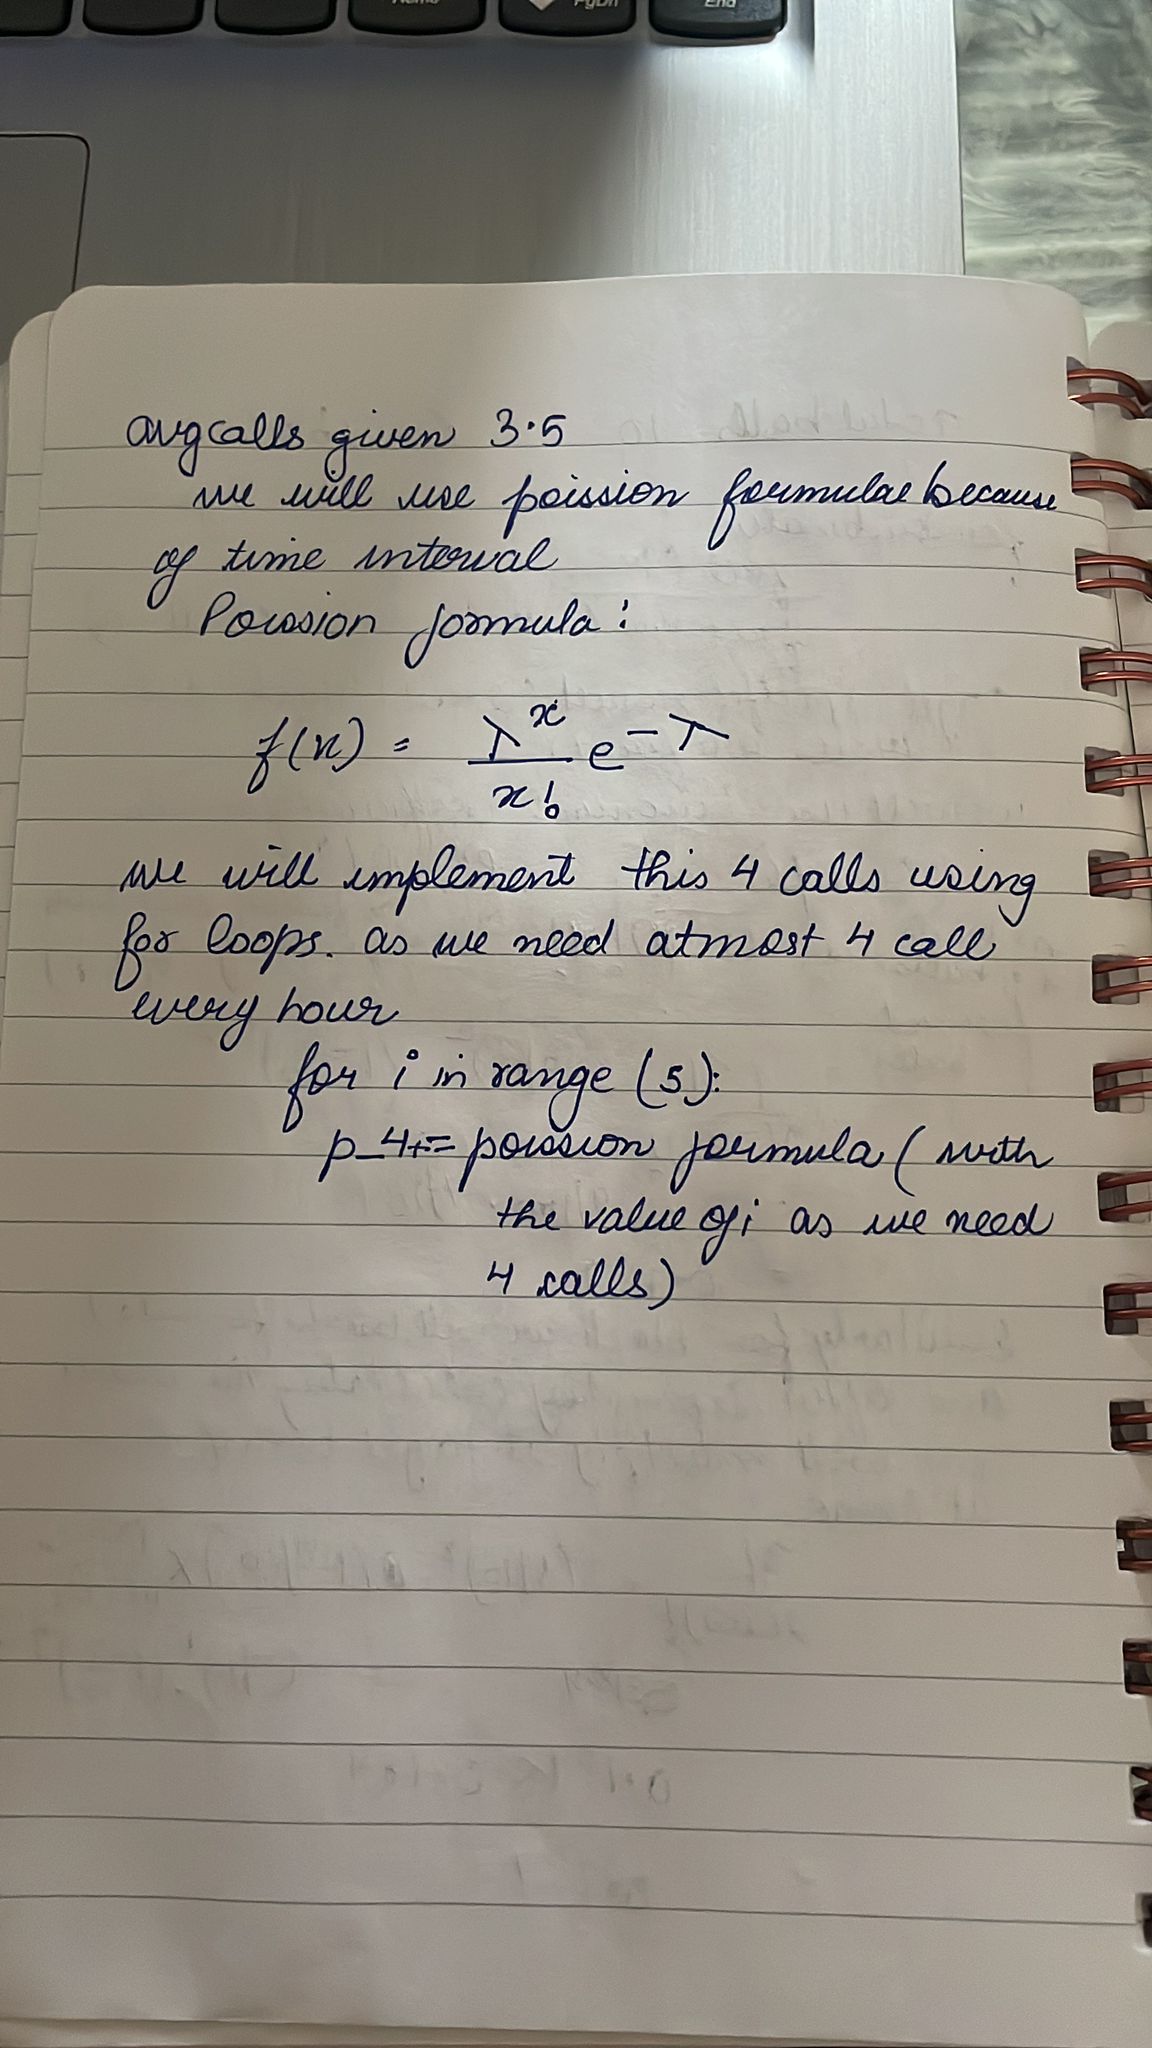 Home
PgDn
End
avgcalls given 3.5
we will use poission formulae because
of time interval
Poission formula:
f(x) = λ^x / x! e^-λ
we will implement this 4 calls using
for loops. as we need atmost 4 call
every hour
for i in range (5):
p_4+= poission formula ( with
the value of i as we need
4 calls)